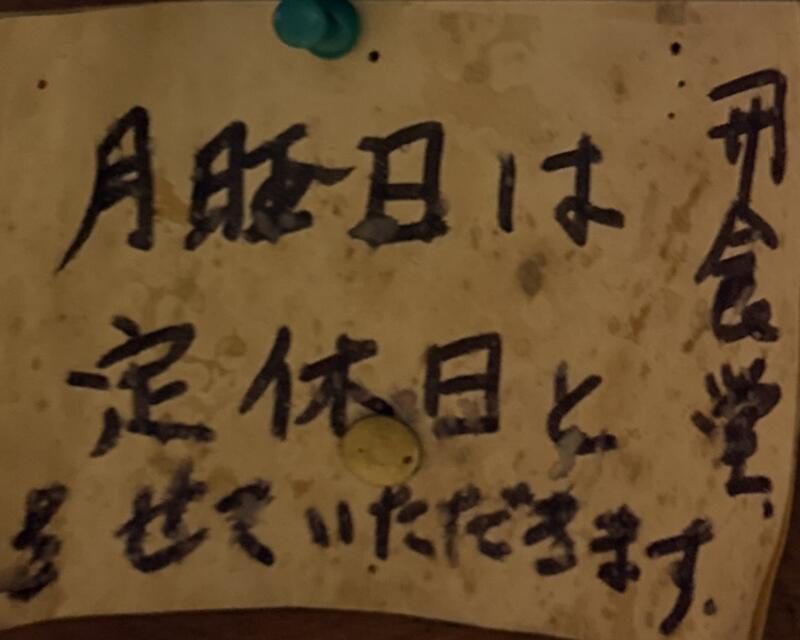 月曜日は
定休日と
させていただきます。
食堂